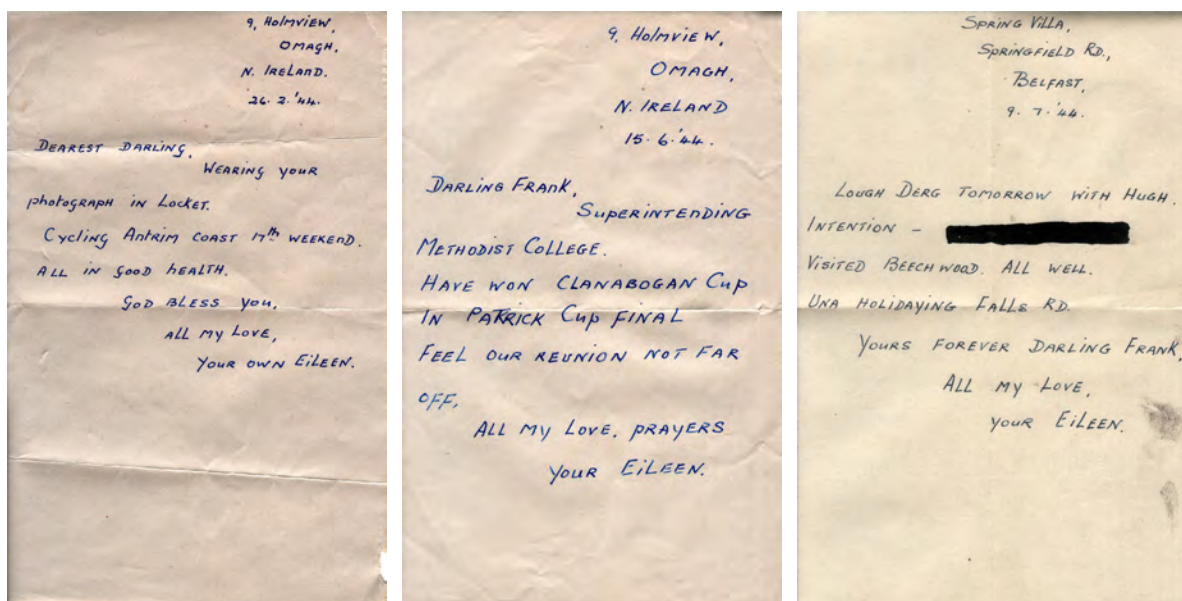 9, HOLMVIEW,
OMAGH,
N. IRELAND.
26. 2. '44.
DEAREST DARLING,
WEARING YOUR
PHOTOGRAPH IN LOCKET.
CYCLING ANTRIM COAST 17th WEEKEND.
ALL IN GOOD HEALTH.
GOD BLESS YOU,
ALL MY LOVE,
YOUR OWN EILEEN.
9, HOLMVIEW,
OMAGH,
N. IRELAND
15. 6. '44.
DARLING FRANK,
SUPERINTENDING
METHODIST COLLEGE.
HAVE WON CLANABOGAN CUP
IN PATRICK CUP FINAL
FEEL OUR REUNION NOT FAR
OFF,
ALL MY LOVE, PRAYERS
YOUR EILEEN.
SPRING VILLA,
SPRINGFIELD RD.,
BELFAST,
9. 7. '44.
LOUGH DERG TOMORROW WITH HUGH.
INTENTION –
VISITED BEECHWOOD. ALL WELL.
UNA HOLIDAYING FALLS RD.
YOURS FOREVER DARLING FRANK,
ALL MY LOVE,
YOUR EILEEN.